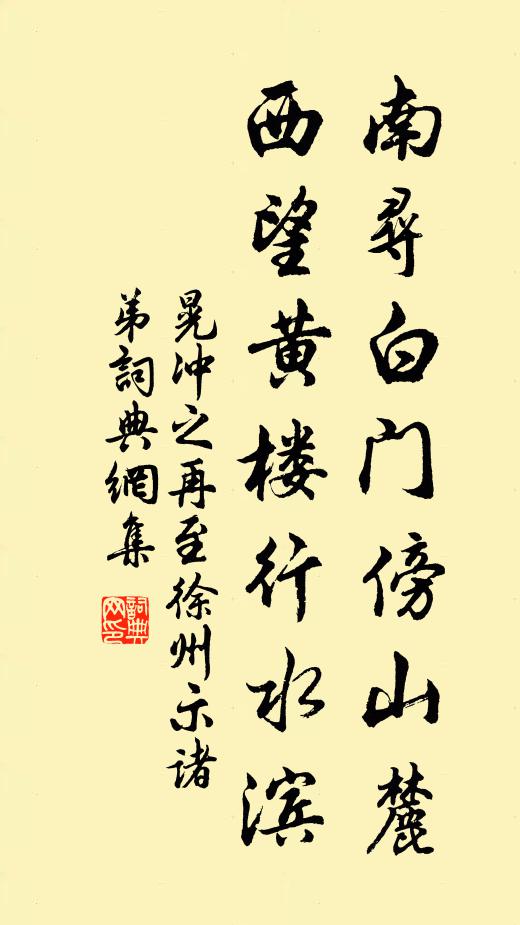 南尋白门傍山麓
西望黄楼行水滨
晃冲之再至徐州示诸
弟詞典網集
詞典网印